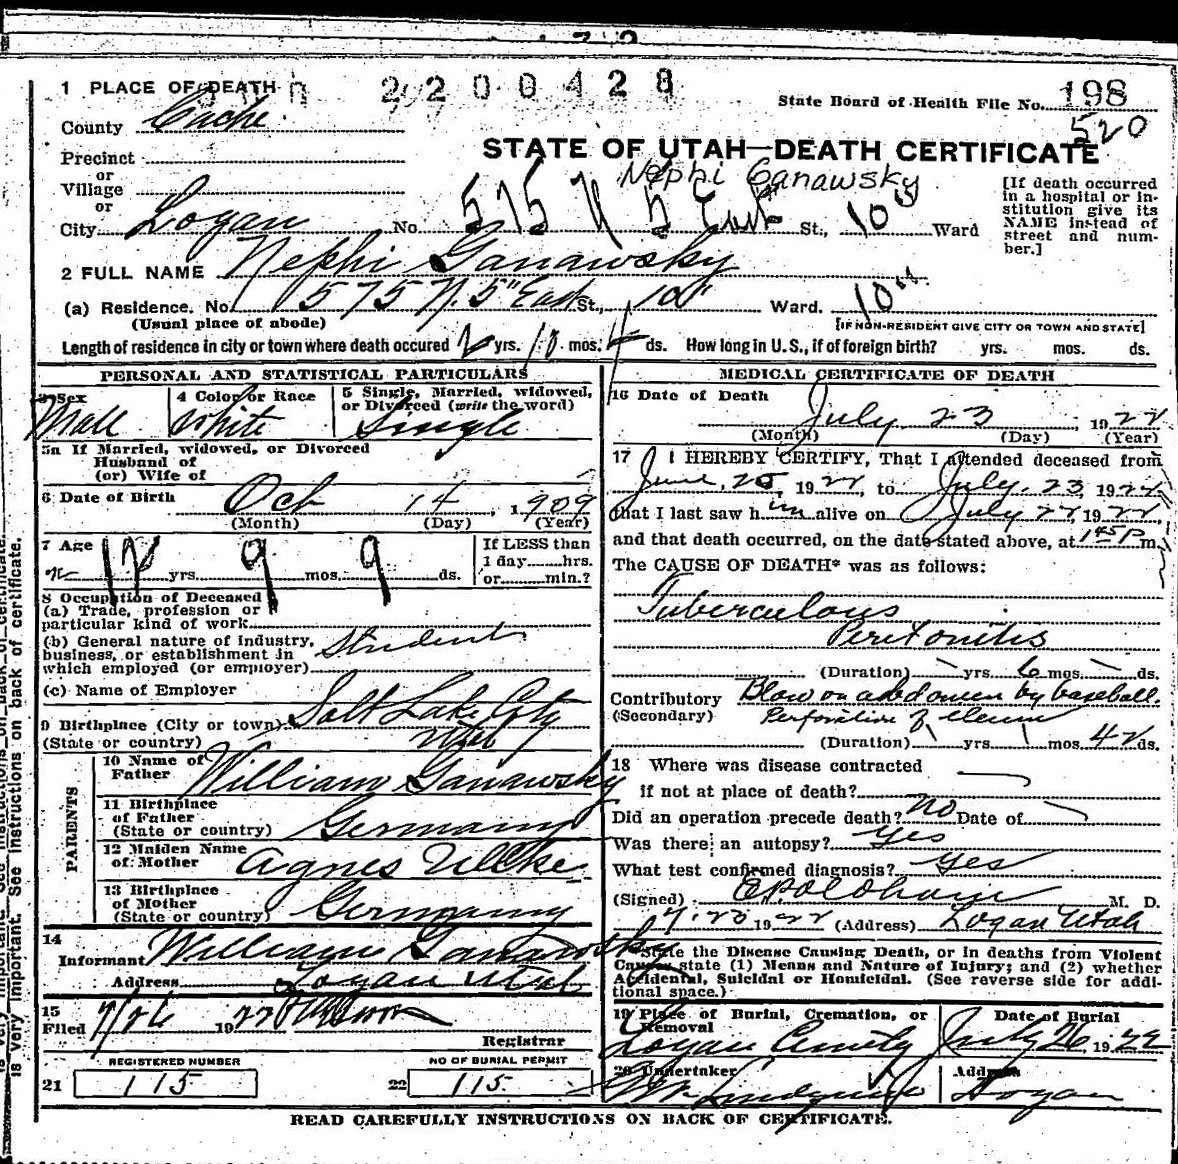 1 PLACE OF DEATH
2200428
State Board of Health File No. 198
520
County Cache
STATE OF UTAH—DEATH CERTIFICATE
Precinct
or
Village
or
Nephi Ganawsky
City Logan No. 575 N 5 East St., 10th Ward
[If death occurred
in a hospital or in-
stitution give its
NAME instead of
street and num-
ber.]
2 FULL NAME Nephi Ganawsky
(a) Residence. No. 575 N. 5" East St., 10" Ward. 10th
(Usual place of abode)
[IF NON-RESIDENT GIVE CITY OR TOWN AND STATE]
Length of residence in city or town where death occured 2 yrs. 10 mos. 4 ds. How long in U. S., if of foreign birth? yrs. mos. ds.
PERSONAL AND STATISTICAL PARTICULARS
3 Sex
Male
4 Color or Race
White
5 Single, Married, widowed,
or Divorced (write the word)
Single
5a If Married, widowed, or Divorced
Husband of
(or) Wife of
6 Date of Birth Oct 14, 1909
(Month) (Day) (Year)
7 Age
12 yrs. 9 mos. 9 ds.
If LESS than
1 day hrs.
or min.?
8 Occupation of Deceased
(a) Trade, profession or
particular kind of work
(b) General nature of Industry,
business, or establishment in
which employed (or employer)
Student
(c) Name of Employer
9 Birthplace (City or town) Salt Lake City
(State or country) Utah
PARENTS
10 Name of
Father William Ganawsky
11 Birthplace
of Father
(State or country) Germany
12 Maiden Name
of Mother Agnes Ullke
13 Birthplace
of Mother
(State or country) Germany
14
Informant William Ganawsky
Address Logan Utah
15
Filed 7/26 1922
Registrar
REGISTERED NUMBER
21 115
NO OF BURIAL PERMIT
22 115
MEDICAL CERTIFICATE OF DEATH
16 Date of Death
July 23 1922
(Month) (Day) (Year)
17 I HEREBY CERTIFY, That I attended deceased from
June, 25, 1922, to July. 23, 1922
that I last saw him alive on July 22, 1922,
and that death occurred, on the date stated above, at 1 45 P m.
The CAUSE OF DEATH* was as follows:
Tuberculous
Peritonitis
(Duration) yrs. 6 mos. ds.
Contributory Blow on abdomen by baseball.
(Secondary) Perforation of ileum
(Duration) yrs. mos. 42 ds.
18 Where was disease contracted
if not at place of death?
Did an operation precede death? no Date of
Was there an autopsy? Yes
What test confirmed diagnosis? Yes
(Signed) E.P. Oldham M. D.
1922 (Address) Logan Utah
*State the Disease Causing Death, or in deaths from Violent
Causes, state (1) Means and Nature of Injury; and (2) whether
Accidental, Suicidal or Homicidal. (See reverse side for addi-
tional space.)
19 Place of Burial, Cremation, or
Removal
Logan Cemetery
Date of Burial
July 26, 1922
20 Undertaker
Wm Lindquist
Address
Logan
READ CAREFULLY INSTRUCTIONS ON BACK OF CERTIFICATE.
is very important. See instructions on back of certificate.